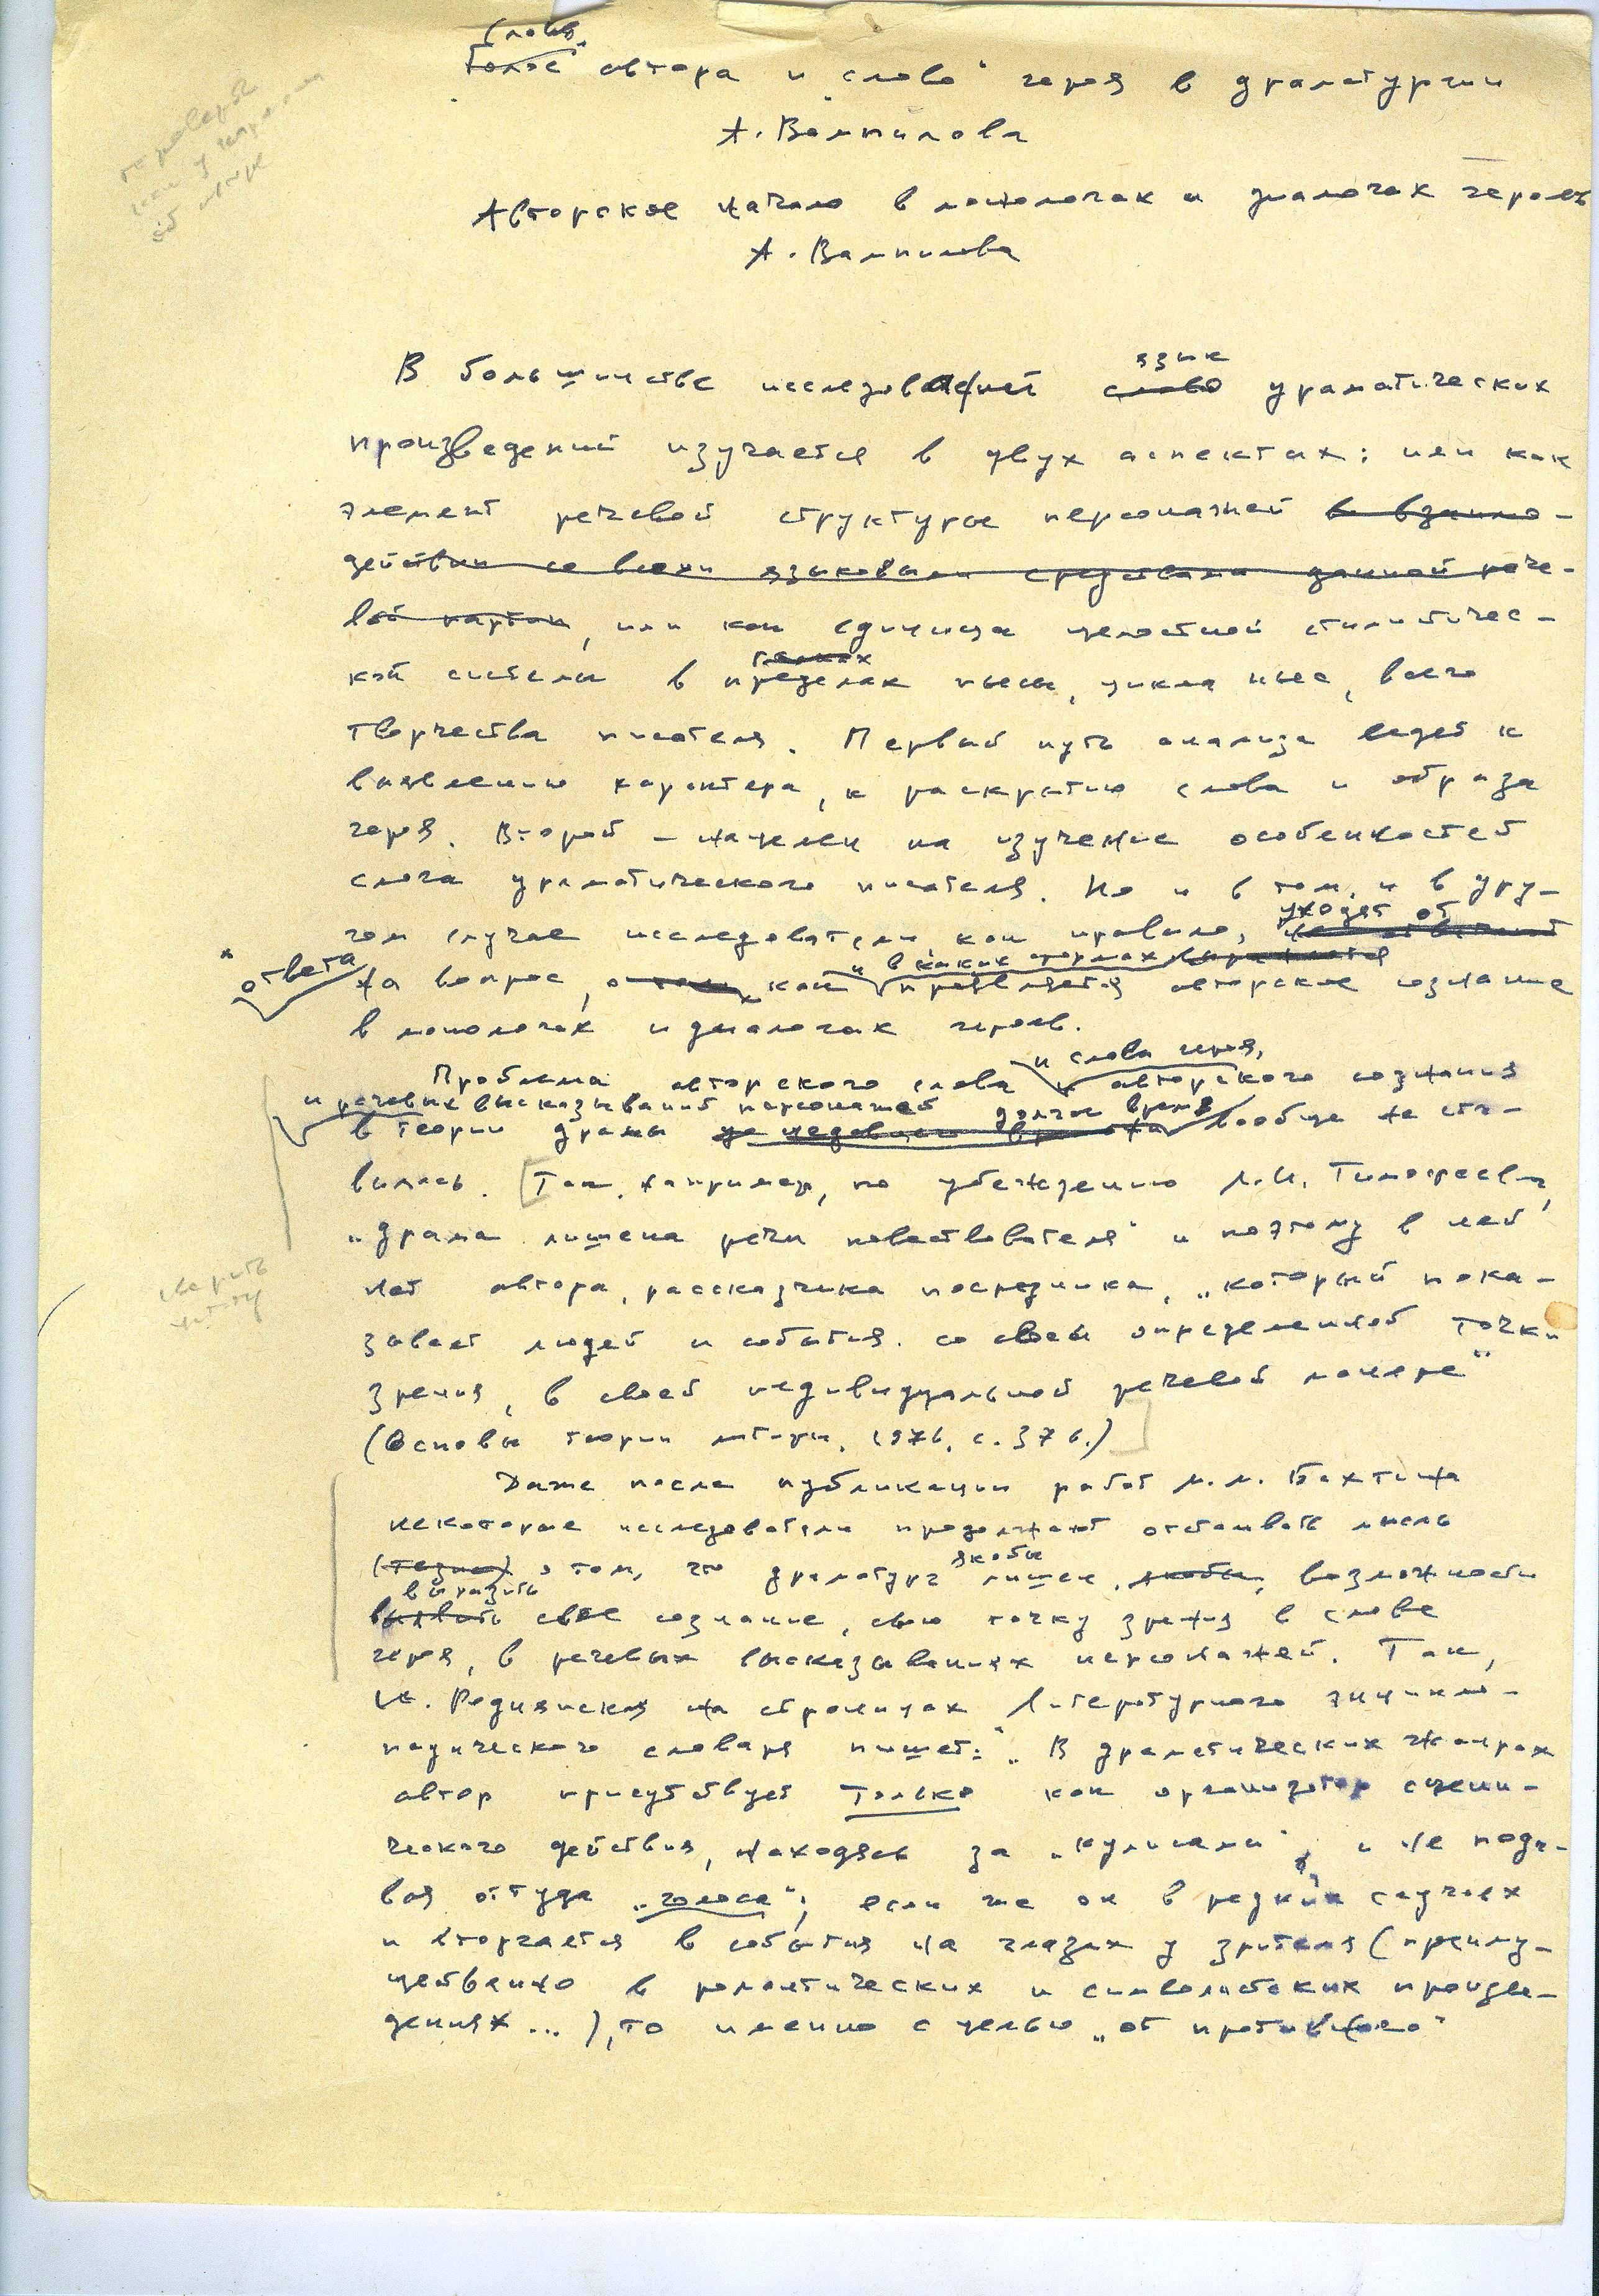 Слово
Голос" автора и "слово" героя в драматургии
А. Вампилова
Авторское начало в монологах и диалогах героев
А. Вампилова
язык
В большинстве исследований слово драматических
произведений изучается в двух аспектах: или как
элемент речевой структуры персонажей в взаимо-
действии со всеми языковыми средствами данной рече-
вой партии, или как единица целостной стилистичес-
рамках
кой системы в пределах пьесы, цикла пьес, всего
творчества писателя. Первый путь анализа ведет к
выявлению характера, к раскрытию слова и образа
героя. Второй – нацелен на изучение особенностей
слога драматического писателя. Но и в том, и в дру-
уходят от
гом случае исследователи, как правило, не отвечают
ответа
в каких формах выражается
на вопрос, о том, как и проявляется авторское сознание
в монологах и диалогах героев.
и слова героя,
Проблема авторского слова и авторского сознания
и речевых высказываний персонажей долгое время
в теории драмы до недавнего времени вообще не ста-
вилась. [Так, например, по убеждению Л.И. Тимофеева,
„драма лишена речи повествователя" и поэтому в ней
нет автора, рассказчика посредника, „который пока-
зывает людей и события со своей определенной точки
зрения, в своей индивидуальной речевой манере"
(Основы теории лит-ры, 1976, с. 376.)]
Даже после публикации работ М.М. Бахтина
некоторые исследователи продолжают отстаивать мысль
якобы
(тезис) о том, что драматург лишен, якобы, возможности
выразить
выявить свое сознание, свою точку зрения в слове
героя, в речевых высказываниях персонажей. Так,
И. Роднянская на страницах Литературного энцикло-
педического словаря пишет: „В драматических жанрах
автор присутствует только как организатор сцени-
ческого действия, находясь за „кулисами", и не пода-
вая оттуда „голоса"; если же он в редких случаях
и вторгается в события на глазах у зрителя (преиму-
щественно в романтических и символистских произве-
дениях...), то именно с целью „от противного"
сверить
цитату